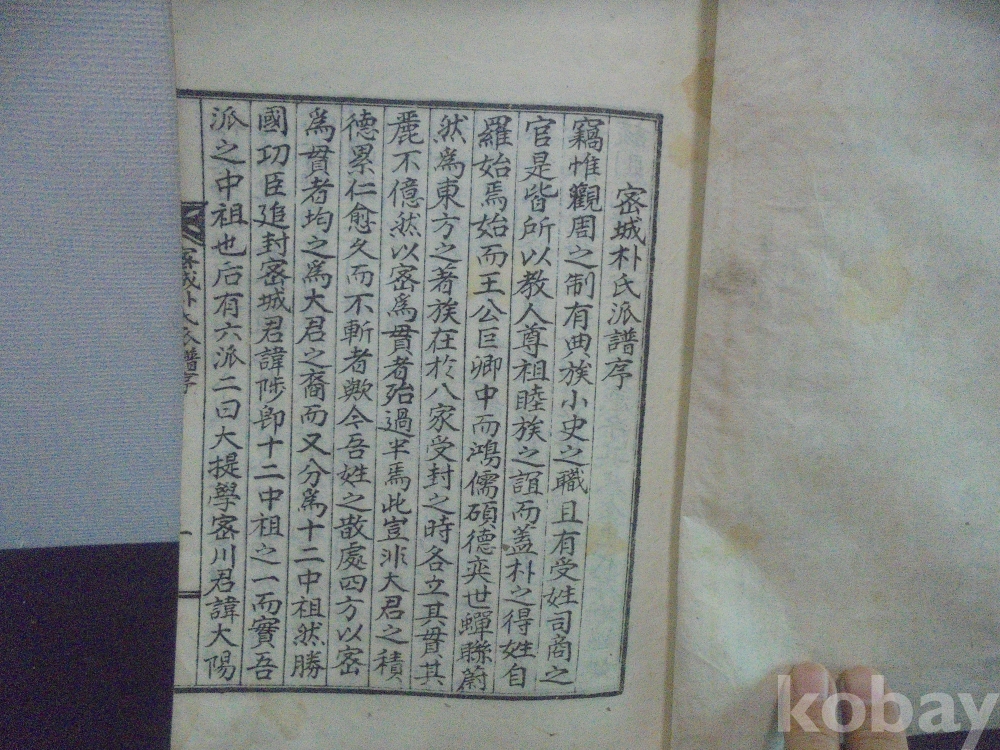 密城朴氏派譜序
竊惟觀周之制有典族小史之職且有受姓司商之
官是皆所以教人尊祖睦族之誼而蓋朴之得姓自
羅始焉始而王公巨卿中而鴻儒碩德奕世蟬聯蔚
然爲東方之著族在於八家受封之時各立其貫其
麗不億然以密爲貫者殆過半焉此豈非大君之積
德累仁愈久而不斬者歟今吾姓之散處四方以密
爲貫者均之爲大君之裔而又分爲十二中祖然勝
國功臣追封密城君諱陟卽十二中祖之一而實吾
派之中祖也后有六派二曰大提學密川君諱大陽
密城朴氏譜序
一
kobay